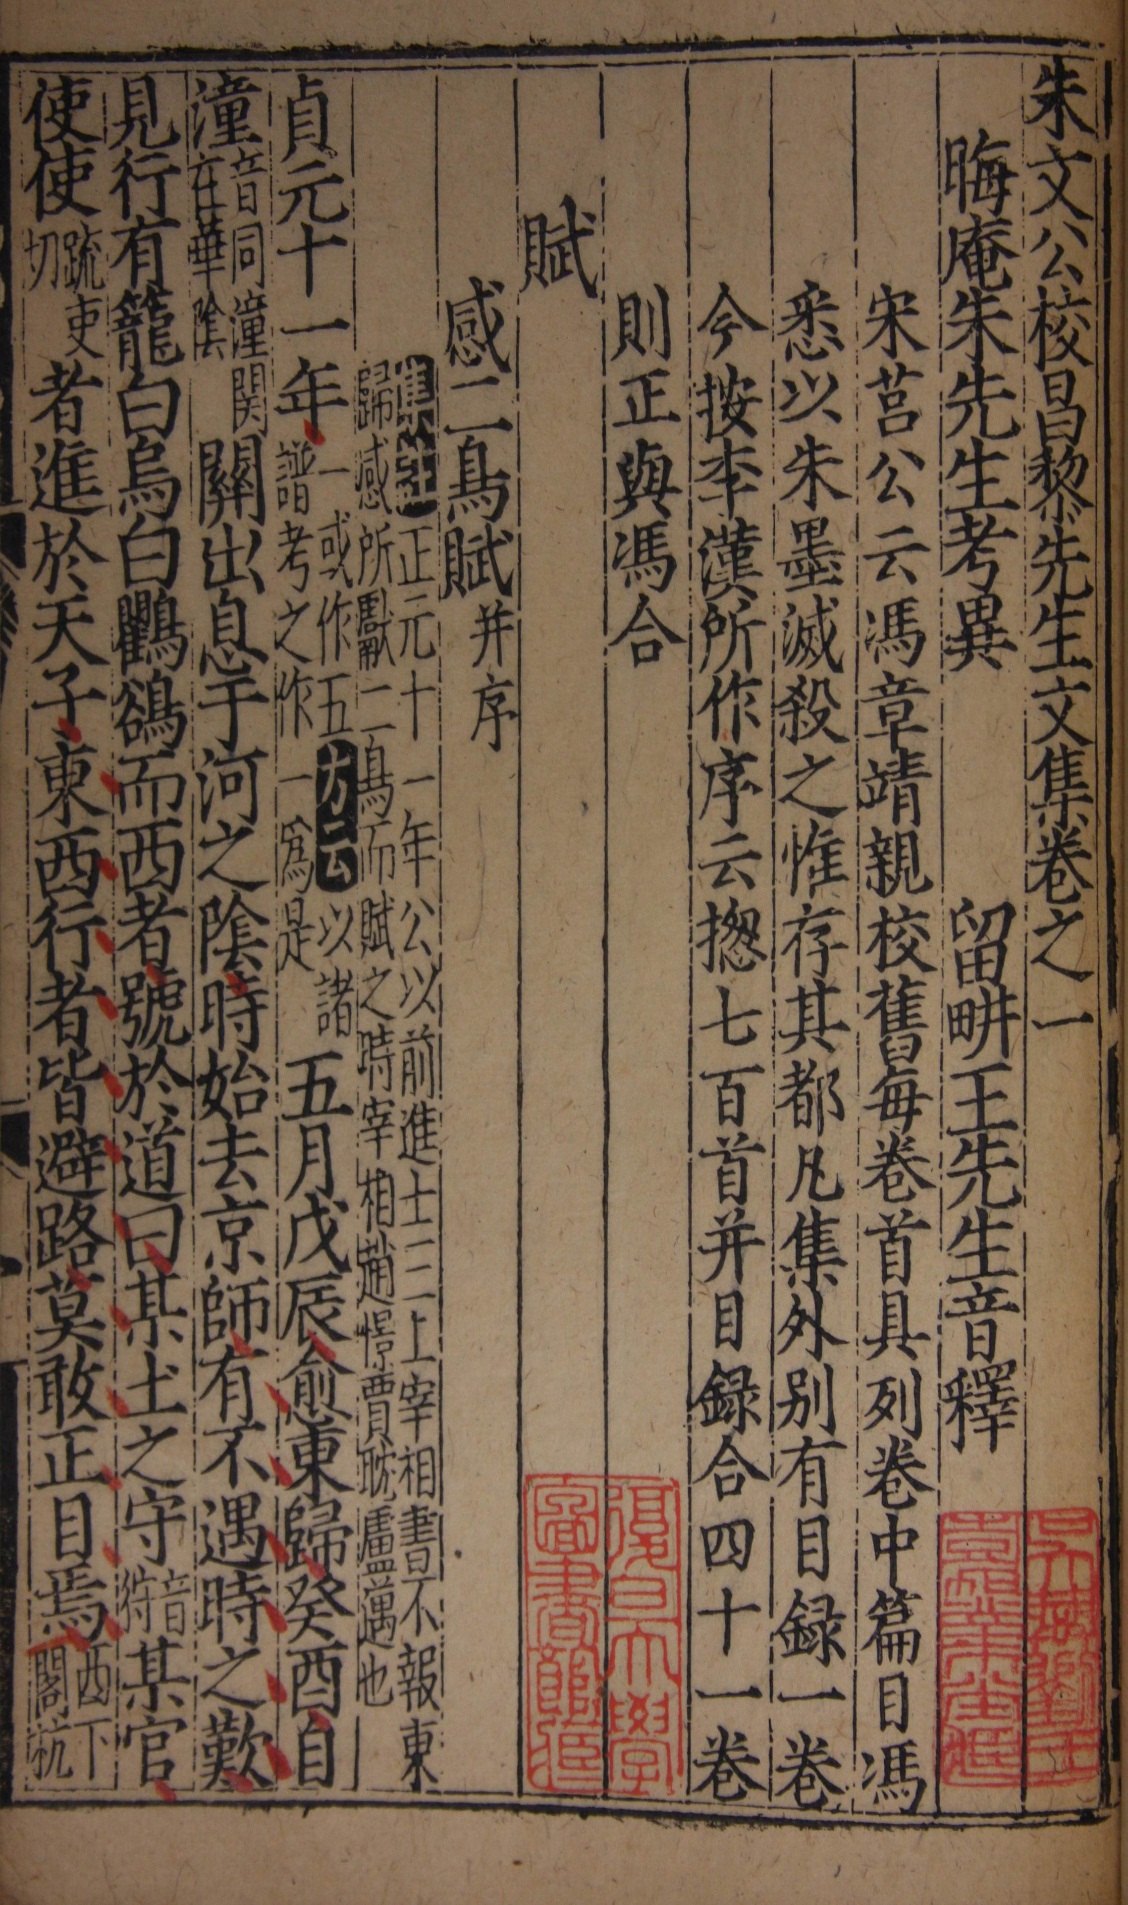 朱文公校昌黎先生文集卷之一
晦庵朱先生考異　留畊王先生音釋
宋莒公云馮章靖親校舊每卷首具列卷中篇目馮
悉以朱墨滅殺之惟存其都凡集外别有目録一卷
今按李漢所作序云摠七百首并目録合四十一卷
則正與馮合
賦
感二鳥賦并序
集註正元十一年公以前進士三上宰相書不報東
歸感所獻二鳥而賦之時宰相趙憬賈耽盧邁也
貞元十一年一或作五方云以諸譜考之作一爲是五月戊辰愈東歸癸酉自
潼音同潼関在華陰關出息于河之陰時始去京師有不遇時之歎
見行有籠白烏白鸜鵒而西者號於道曰某土之守音狩某官
使使疏吏切者進於天子東西行者皆避路莫敢正目焉西下閣杭
復旦大學
圖書館藏
吳興劉氏
嘉業堂藏